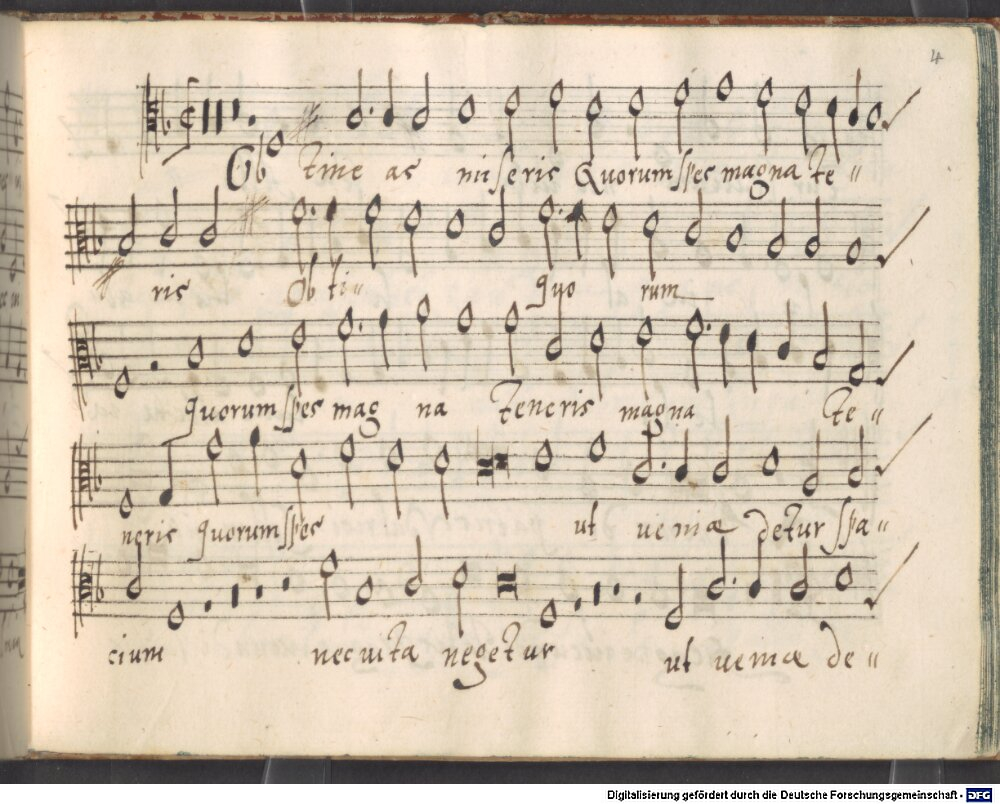 4
Ob tine as miseris Quorum spes magna te〃
ris Ob ti〃 quo rum
quorum spes mag na teneris magna te〃
neris quorum spes ut veniæ detur spa〃
cium nec vita negetur ut veniæ de〃
Digitalisierung gefördert durch die Deutsche Forschungsgemeinschaft - DFG